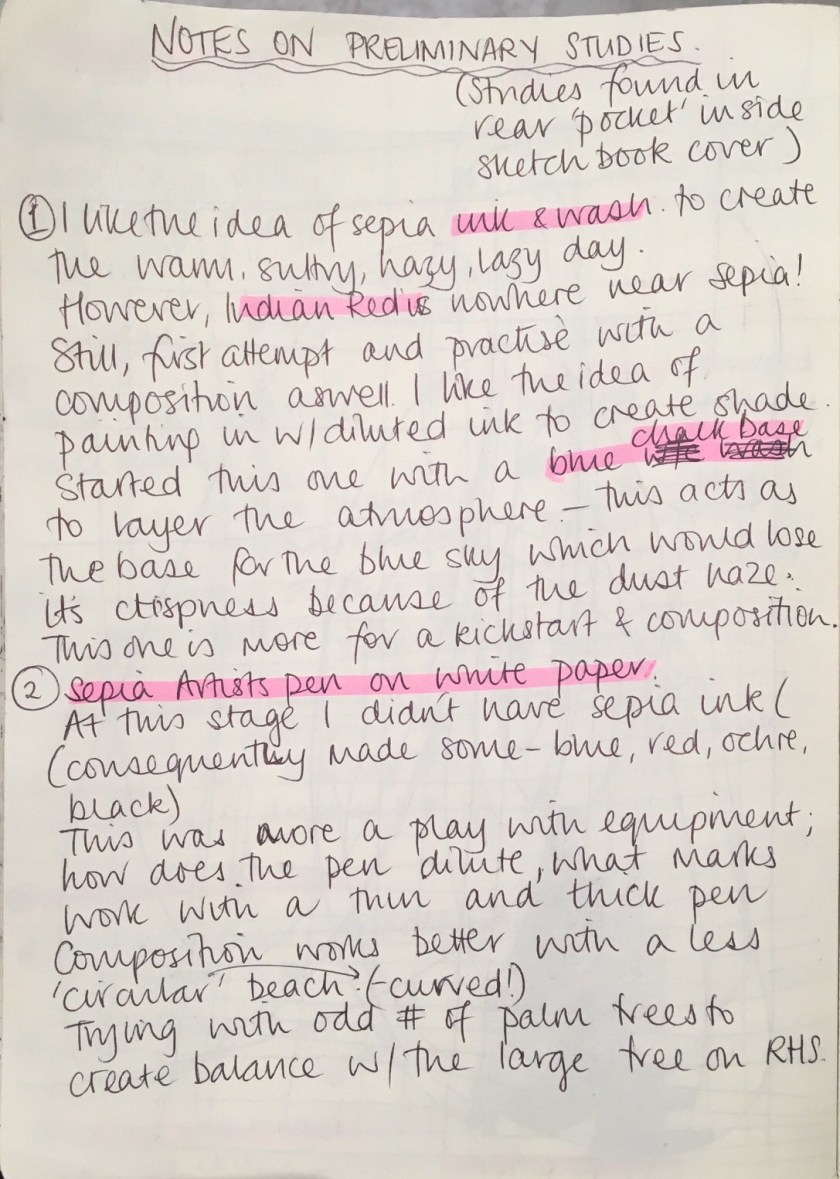 NOTES ON PRELIMINARY STUDIES.
(Studies found in
rear 'pocket' inside
sketch book cover)
① I like the idea of sepia ink & wash. to create
the warm, sultry, hazy, lazy day.
However, Indian Red is nowhere near sepia!
Still, first attempt and practise with a
composition aswell. I like the idea of
painting in w/diluted ink to create shade.
Started this one with a blue chalk base
to layer the atmosphere – this acts as
the base for the blue sky which would lose
it's crispness because of the dust haze.
This one is more for a kickstart & composition.
② Sepia Artists pen on white paper.
At this stage I didn't have sepia ink (
(consequently made some – blue, red, ochre,
black)
This was more a play with equipment;
how does the pen dilute, what marks
work with a thin and thick pen
Composition works better with a less
'circular' beach. (-curved!)
Trying with odd # of palm trees to
create balance w/the large tree on RHS.